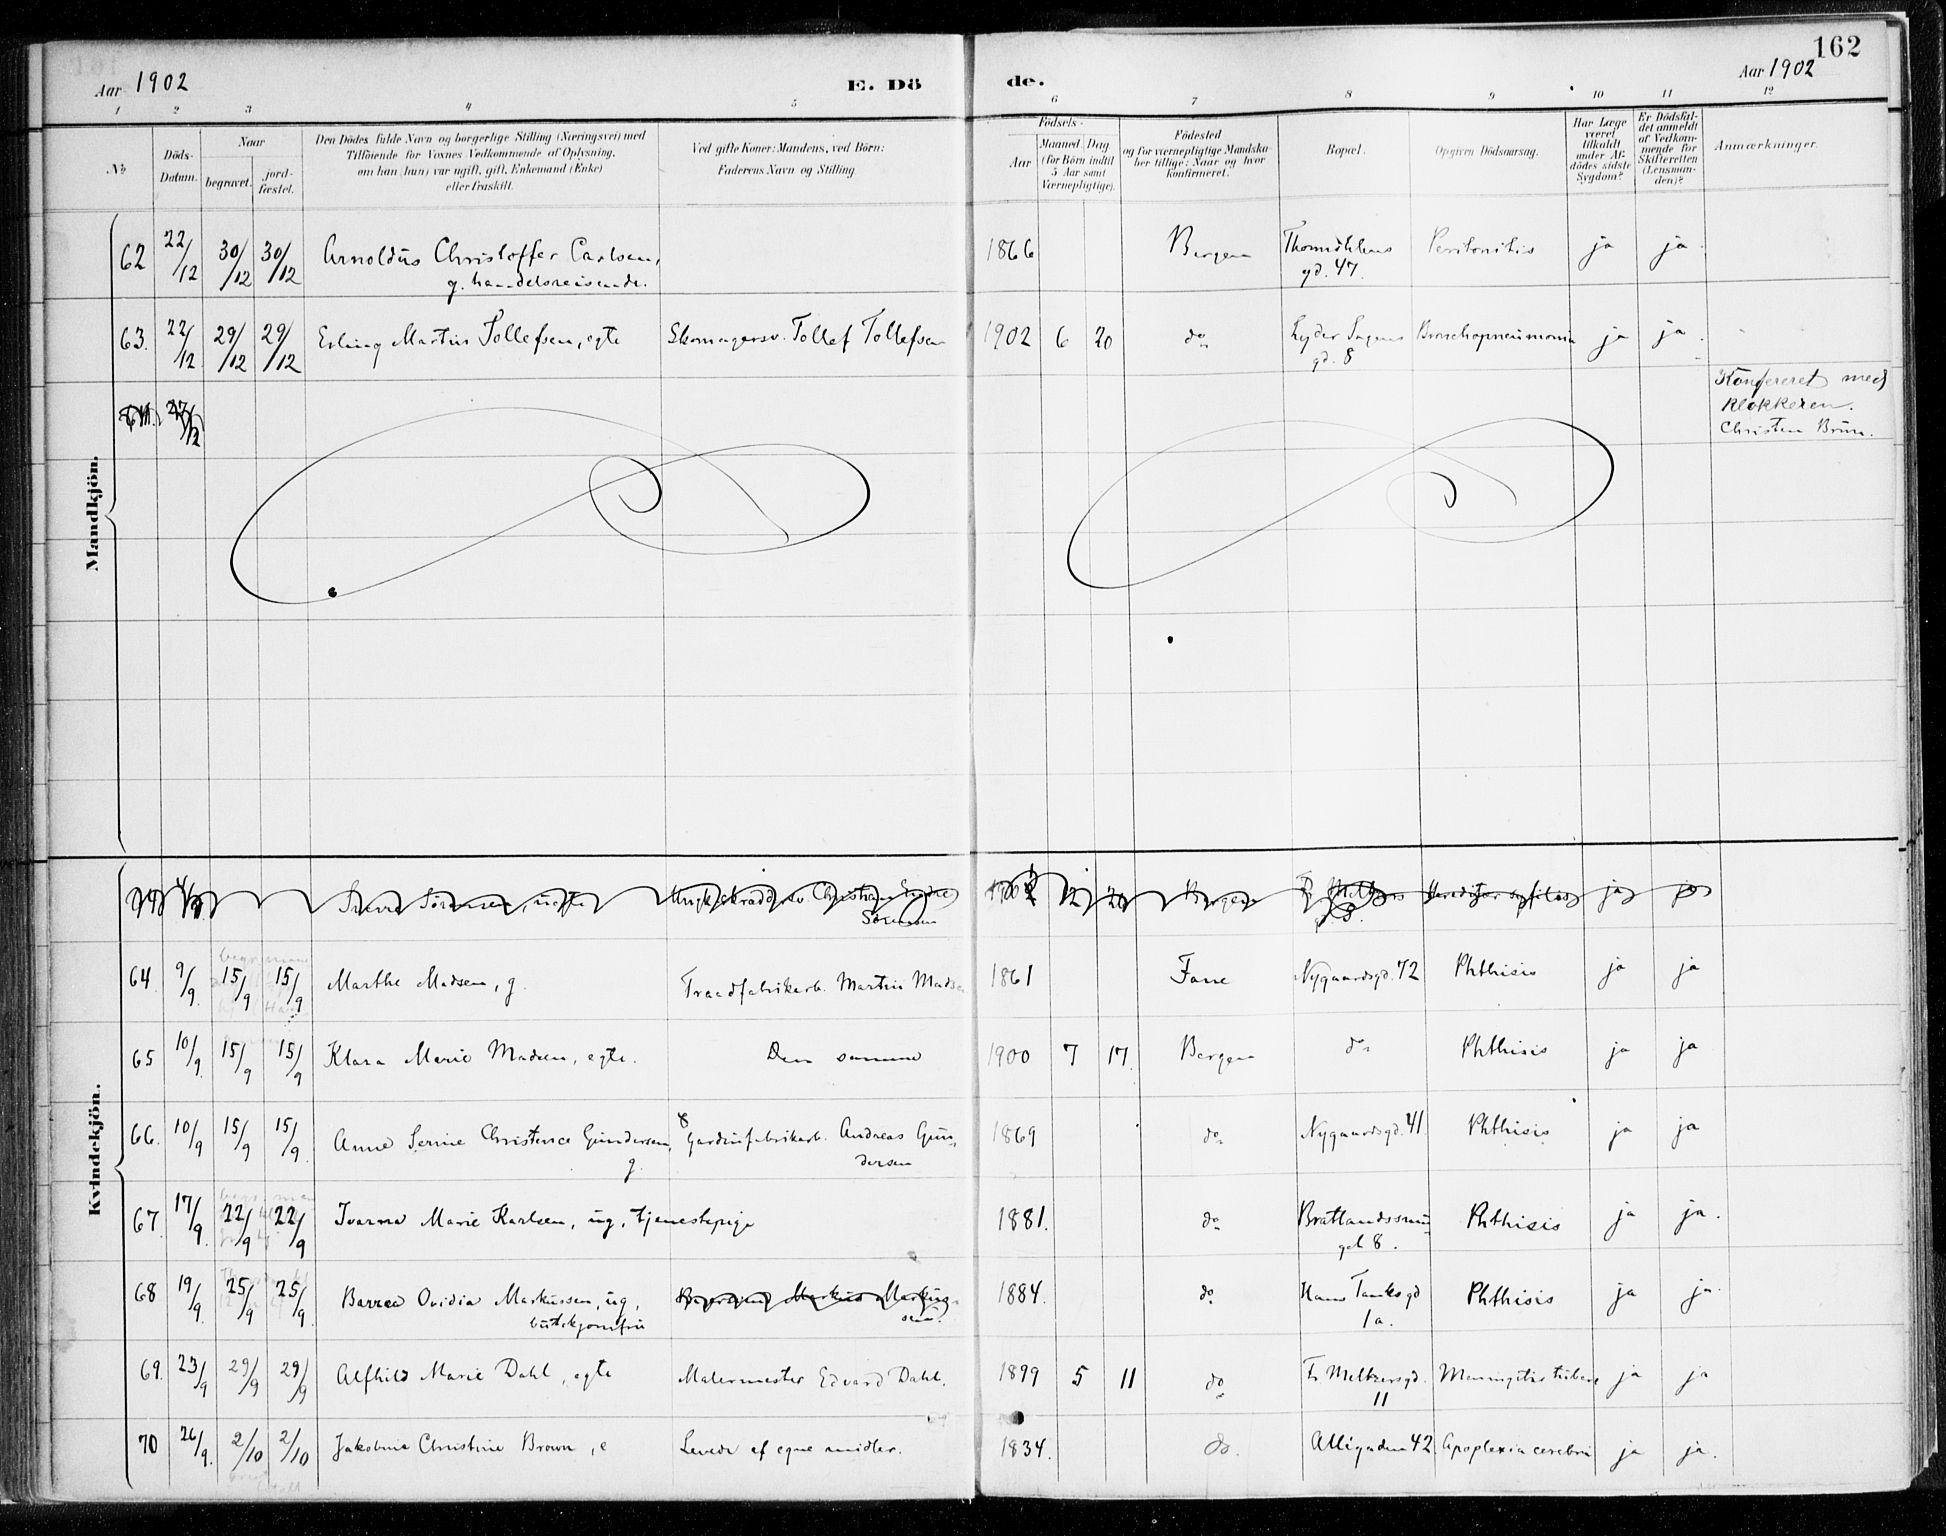 162
Aar 1902 E. Döde. Aar 1902
1 2 3 4 5 6 7 8 9 10 11 12
№
Döds-Datum.
Naar
begravet.
jordfæstet.
Den Dödes fulde Navn og borgerlige Stilling (Næringsvei) med
Tilföiende for Voxnes Vedkommende af Oplysning,
om han (hun) var ugift, gift, Enkemand (Enke)
eller fraskilt.
Ved gifte Koner: Mandens, ved Börn:
Faderens Navn og Stilling.
Födsels-
Aar
Maaned. Dag
(for Börn indtil
5 Aar samt
Værnepligtige).
Födested
og for værnepligtige Mandskaber tillige: Naar og hvor
konfirmeret.
Bopæl.
Opgiven Dödsaarsag.
Har Læge
været
tilkaldt
under Afdödes sidste
Sygdom?
Er Dödsfaldet anmeldt
af Vedkommende for
Skifteretten
(Lensmanden)?
Anmærkninger.
Mandkjön.
62 22/12 30/12 30/12 Arnoldus Christoffer Carlsen, 1866 Bergen Thormöhlens Peritonitis ja ja.
g. handelsreisende. gd. 47.
63. 22/12 29/12 29/12 Erling Martin Tollefsen, egte Skomagersv. Tollef Tollefsen 1902 6 20 do Lyder Sagens Bronchopneumonia ja ja.
gd. 8
64. 27/12
Konfereret med
Klokkeren.
Christen Brun.
Kvindekjön.
Sörensen, uegte Christian 1902 12 20 Bergen ja ja
Sörensen
64. 9/9. 15/9 15/9 Marthe Madsen, g. Traadfabrikarb. Martin Madsen 1861 Fane Nygaardsgd. 72 Phthisis ja ja
65 10/9. 15/9 15/9 Klara Marie Madsen, egte. Den samme 1900 7 17. Bergen do Phthisis ja ja
66. 10/9 15/9 15/9. Anne Serine Christence Gundersen, Gardinfabrikarb. Andreas Gundersen 1869 do Nygaardsgd. 41 Phthisis ja ja
g.
67. 17/9. 22/9 22/9 Ivarna Marie Karlsen, ug, tjenestepige 1881. do Brattlandssmug Phthisis ja ja.
gd 8.
68 19/9. 25/9 25/9. Barzea Ovidia Markussen, ug, Markus Markussen. 1884. do. Hans Tanksgd Phthisis ja ja.
butikjomfru 1a.
69. 23/9 29/9 29/9 Alfhild Marie Dahl, egte Malermester Edvard Dahl. 1899 5 11 do Fr Meltzersgd. Meningitis tuberc ja ja
11
70 26/9. 2/10 2/10 Jakobine Christine Brown, e Levede af egne midler. 1834. do. Alligaden 42. Apoplexia cerebri ja ja.